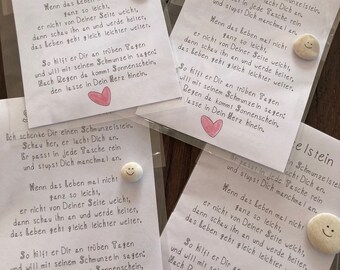 Wenn das Leben mal nicht
ganz so leicht,
er nicht von Deiner Seite weicht,
dann schau ihn an und werde heiter,
das Leben geht gleich leichter weiter.
So hilft er Dir an trüben Tagen
und will mit seinem Schmunzeln sagen:
Nach Regen da kommt Sonnenschein,
den lasse in Dein Herz hinein.
in jede Tasche rein
und stupst Dich manchmal an.
Wenn das Leben mal nicht
ganz so leicht,
er nicht von Deiner Seite weicht,
dann schau ihn an und werde heiter,
das Leben geht gleich leichter weiter.
So hilft er Dir an trüben Tagen
und will mit seinem Schmunzeln sagen:
Regen da kommt Sonnenschein,
lasse in Dein Herz hinein.
Ich schenke Dir einen Schmunzelstein,
Schau her, er lacht Dich an.
Er passt in jede Tasche rein
und stupst Dich manchmal an.
Wenn das Leben mal nicht
ganz so leicht,
er nicht von Deiner Seite weicht,
dann schau ihn an und werde heiter,
das Leben geht gleich leichter weiter.
So hilft er Dir an trüben Tagen
und will mit seinem Schmunzeln sagen:
Nach Regen da kommt Sonnenschein,
elstein
Wenn das Leben mal nicht
ganz so leicht,
er nicht von Deiner Seite weicht,
dann schau ihn an und werde
das Leben geht gleich leichter
So hilft er Dir an trüben
und will mit seinem Schmunzeln
Nach Regen da kommt